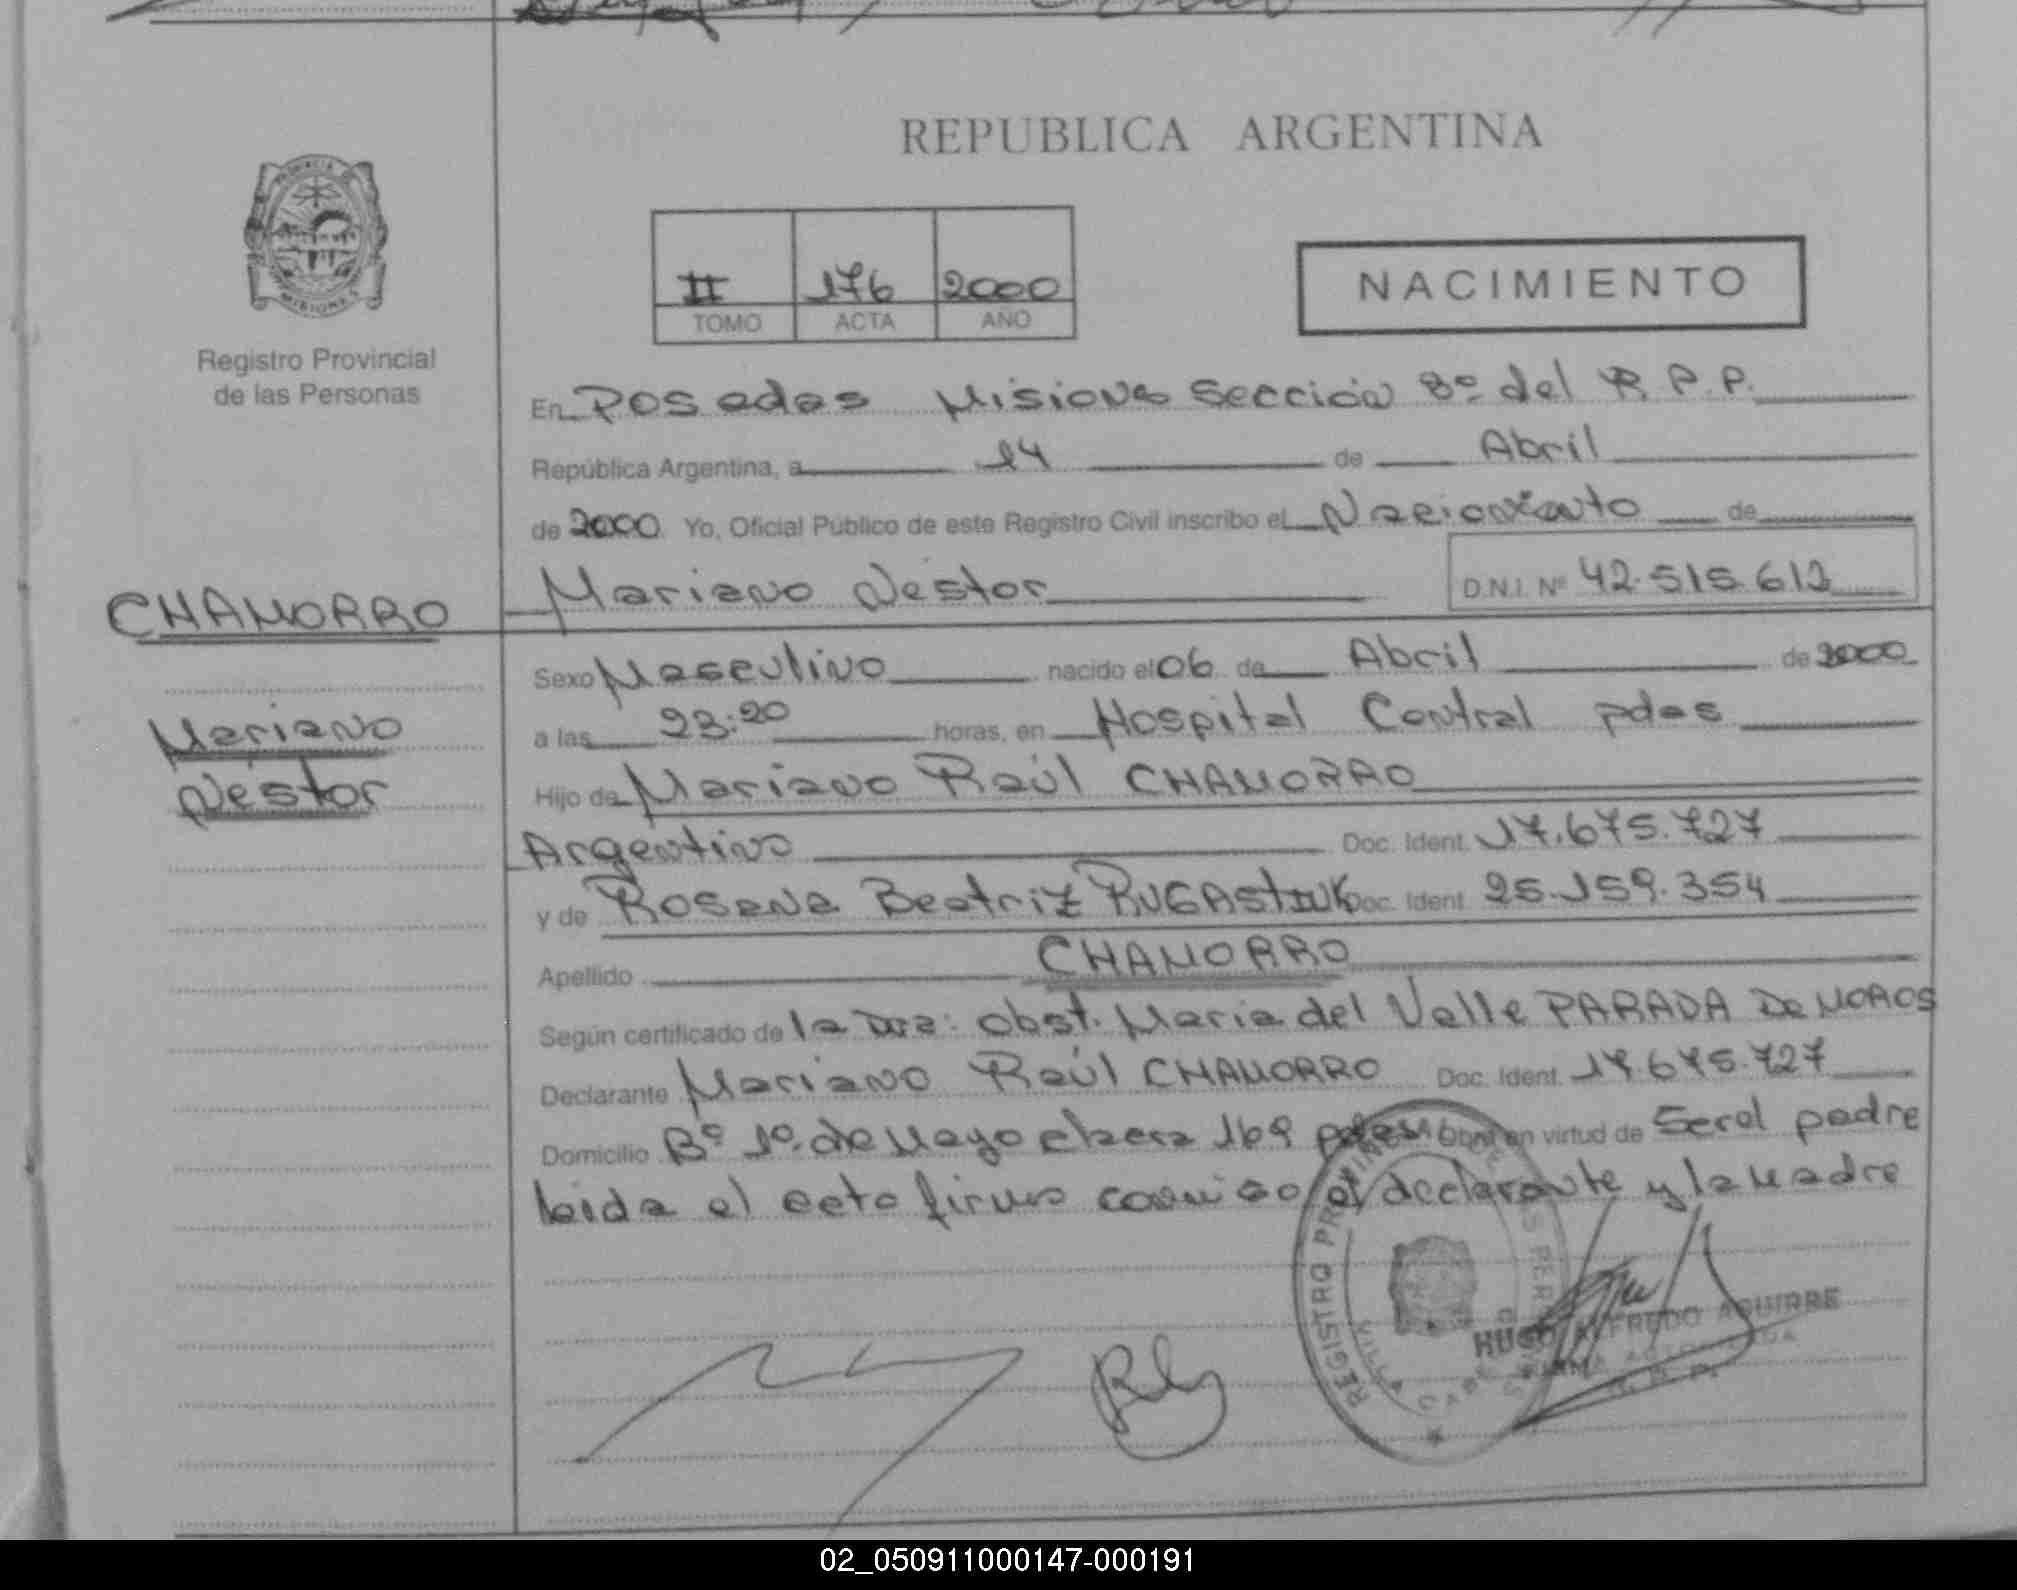 REPUBLICA ARGENTINA
PROVINCIA
MISIONES
Registro Provincial
de las Personas
II 176 2000
TOMO ACTA AÑO
NACIMIENTO
En Posadas Misiones Sección 8º del R.P.P.
República Argentina, a 14 de Abril
de 2000 Yo, Oficial Público de este Registro Civil inscribo el Nacimiento de
CHAMORRO Mariano Néstor D.N.I. Nº 42.515.612
Sexo Masculino nacido el 06 de Abril de 2000
Mariano a las 23:20 horas, en Hospital Central pdas
Néstor Hijo de Mariano Raúl CHAMORRO
Argentino Doc. Ident. 17.675.727
y de Rosana Beatriz RUGASTINK Doc. Ident. 25.159.354
Apellido CHAMORRO
Según certificado de la Dra: Obst. Maria del Valle PARADA De MOROS
Declarante Mariano Raúl CHAMORRO Doc. Ident. 17.675.727
Domicilio Bº 1º de Mayo chacra 169 pdas Obra en virtud de Ser el padre
leida el acta firma conmigo el declarante y la madre
REGISTRO PROVINCIAL DE LAS PERSONAS
VILLA CABELLO
HUGO ALFREDO AGUIRRE
FIRMA AUTORIZADA
R. P. P.
02_050911000147-000191